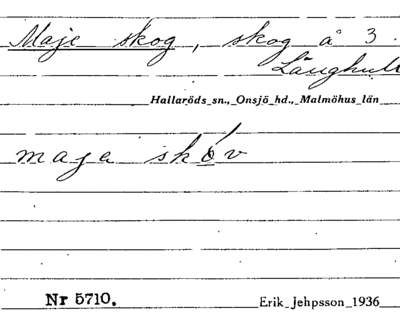 Maje skog, skog å 3.
Långhult
Hallaröds sn., Onsjö hd., Malmöhus län
maja skóv
Nr 5710.
Erik Jehpsson 1936